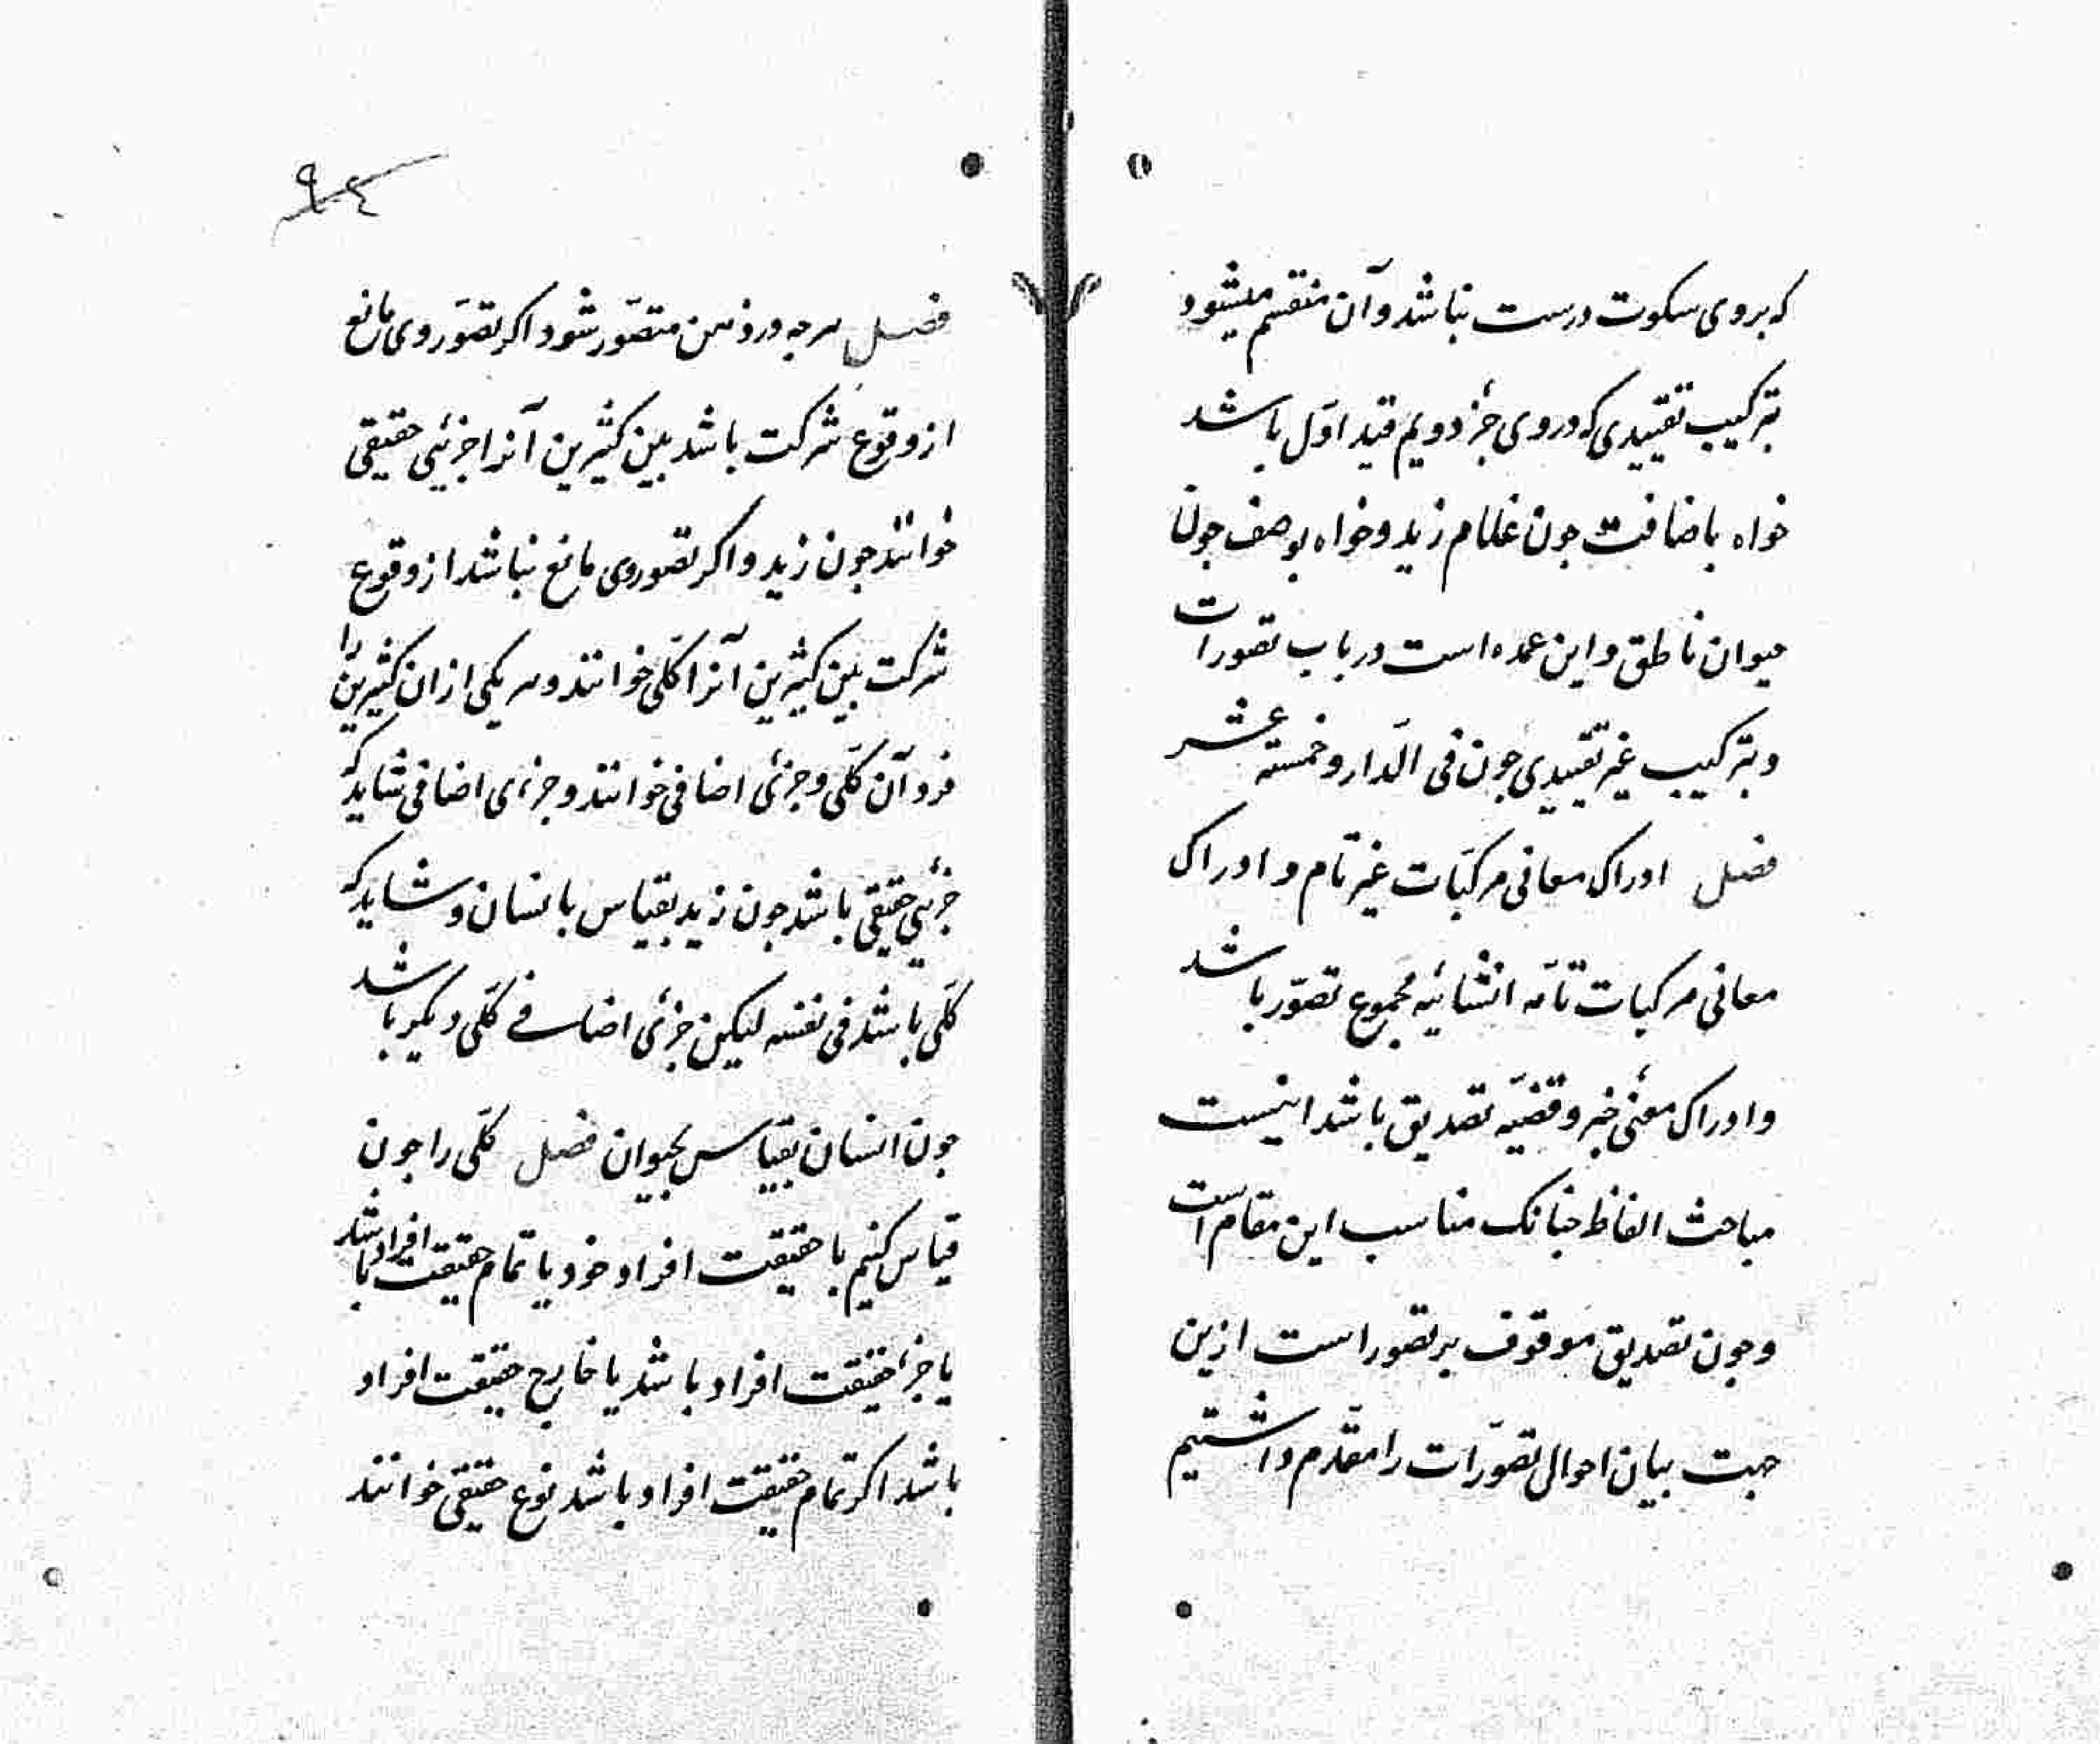 که بروی سکوت درست نباشد و آن منقسم میشود
بترکیب تقییدی که دروی جزء دویم قید اوّل باشد
خواه باضافت جون غلام زید و خواه بوصف جون
حیوان ناطق و این عمده است در باب تصورات
و بترکیب غیر تقییدی جون فی الدّار و خمسة عشر
فصل ادراک معانی مرکبّات غیر تام و ادراک
معانی مرکبات تامّه انشائیه مجموع تصوّر باشد
و ادراک معنی خبر و قضیّه تصدیق باشد اینست
مباحث الفاظ جنانک مناسب این مقام است
و جون تصدیق موقوف بر تصور است ازین
جهت بیان احوال تصوّرات را مقدّم داشتیم
۹٤
فصل هرجه در ذهن متصوّر شود اکر تصوّر وی مانع
از وقوع شرکت باشد بین کثیرین آنرا جزئی حقیقی
خوانند جون زید و اکر تصور وی مانع نباشد از وقوع
شرکت بین کثیرین آنرا کلّی خوانند و هر یکی از ان کثیرین را
فرد آن کلّی و جزئی اضافی خوانند و جزئی اضافی شاید که
جزئی حقیقی باشد جون زید بقیاس بانسان و شاید که
کلّی باشد فی نفسه لیکن جزئی اضافی کلّی دیکر باشد
جون انسان بقیاس بحیوان فصل کلّی را جون
قیاس کنیم با حقیقت افراد خود یا تمام حقیقت افراد باشد
یا جزء حقیقت افراد باشد یا خارج حقیقت افراد
باشد اکر تمام حقیقت افراد باشد نوع حقیقی خوانند